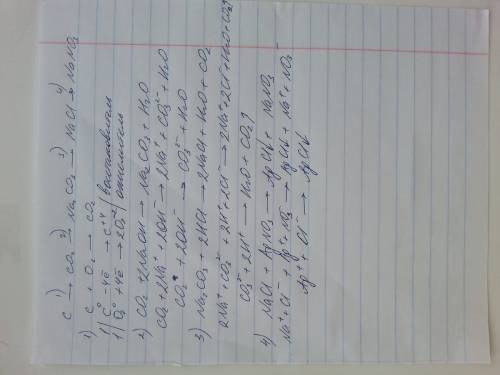 C →¹⁾ CO₂ →²⁾ Na₂CO₃ →³⁾ NaCl →⁴⁾ NaNO₃
1) C + O₂ → CO₂
1| C⁰ -4ē → C⁺⁴ | восстановитель
1| O₂⁰ +4ē → 2O⁻² | окислитель
2) CO₂ + 2NaOH → Na₂CO₃ + H₂O
CO₂ + 2Na⁺ + 2OH⁻ → 2Na⁺ + CO₃²⁻ + H₂O
CO₂ + 2OH⁻ → CO₃²⁻ + H₂O
3) Na₂CO₃ + 2HCl → 2NaCl + H₂O + CO₂
2Na⁺ + CO₃²⁻ + 2H⁺ + 2Cl⁻ → 2Na⁺ + 2Cl⁻ + H₂O + CO₂↑
CO₃²⁻ + 2H⁺ → H₂O + CO₂↑
4) NaCl + AgNO₃ → AgCl↓ + NaNO₃
Na⁺ + Cl⁻ + Ag⁺ + NO₃⁻ → AgCl↓ + Na⁺ + NO₃⁻
Ag⁺ + Cl⁻ → AgCl↓